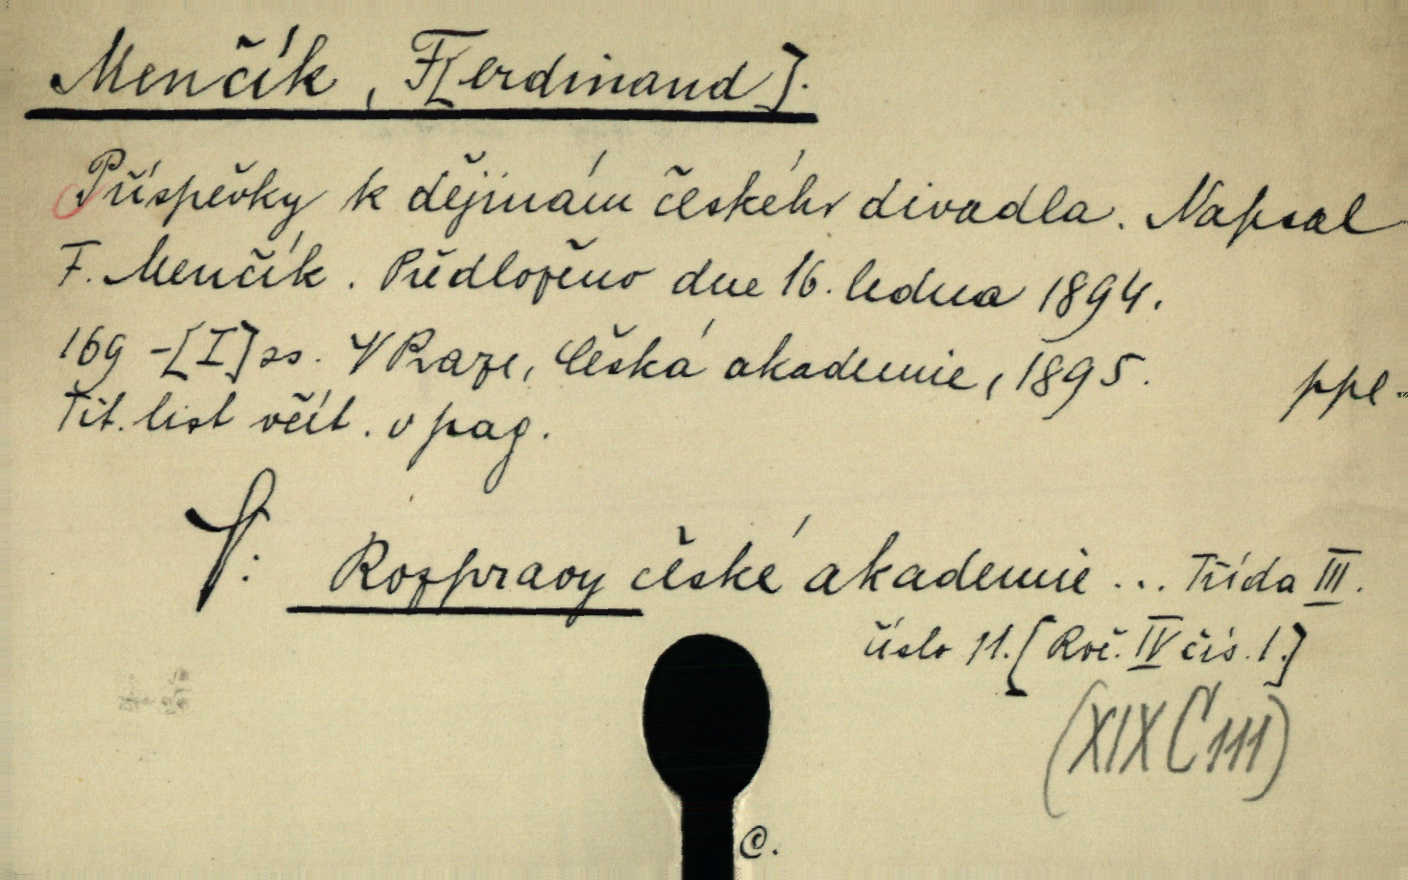 Menčík, F[erdinand].
Příspěvky k dějinám českého divadla. Napsal
F. Menčík. Předloženo dne 16. ledna 1894.
169 -[I] ss. V Praze, Česká akademie, 1895. ppl.
Tit. list včít. v pag.
V: Rozpravy české akademie... Třída III.
číslo 11. [Roč. IV čís. 1.]
(XIX C 111)
C.